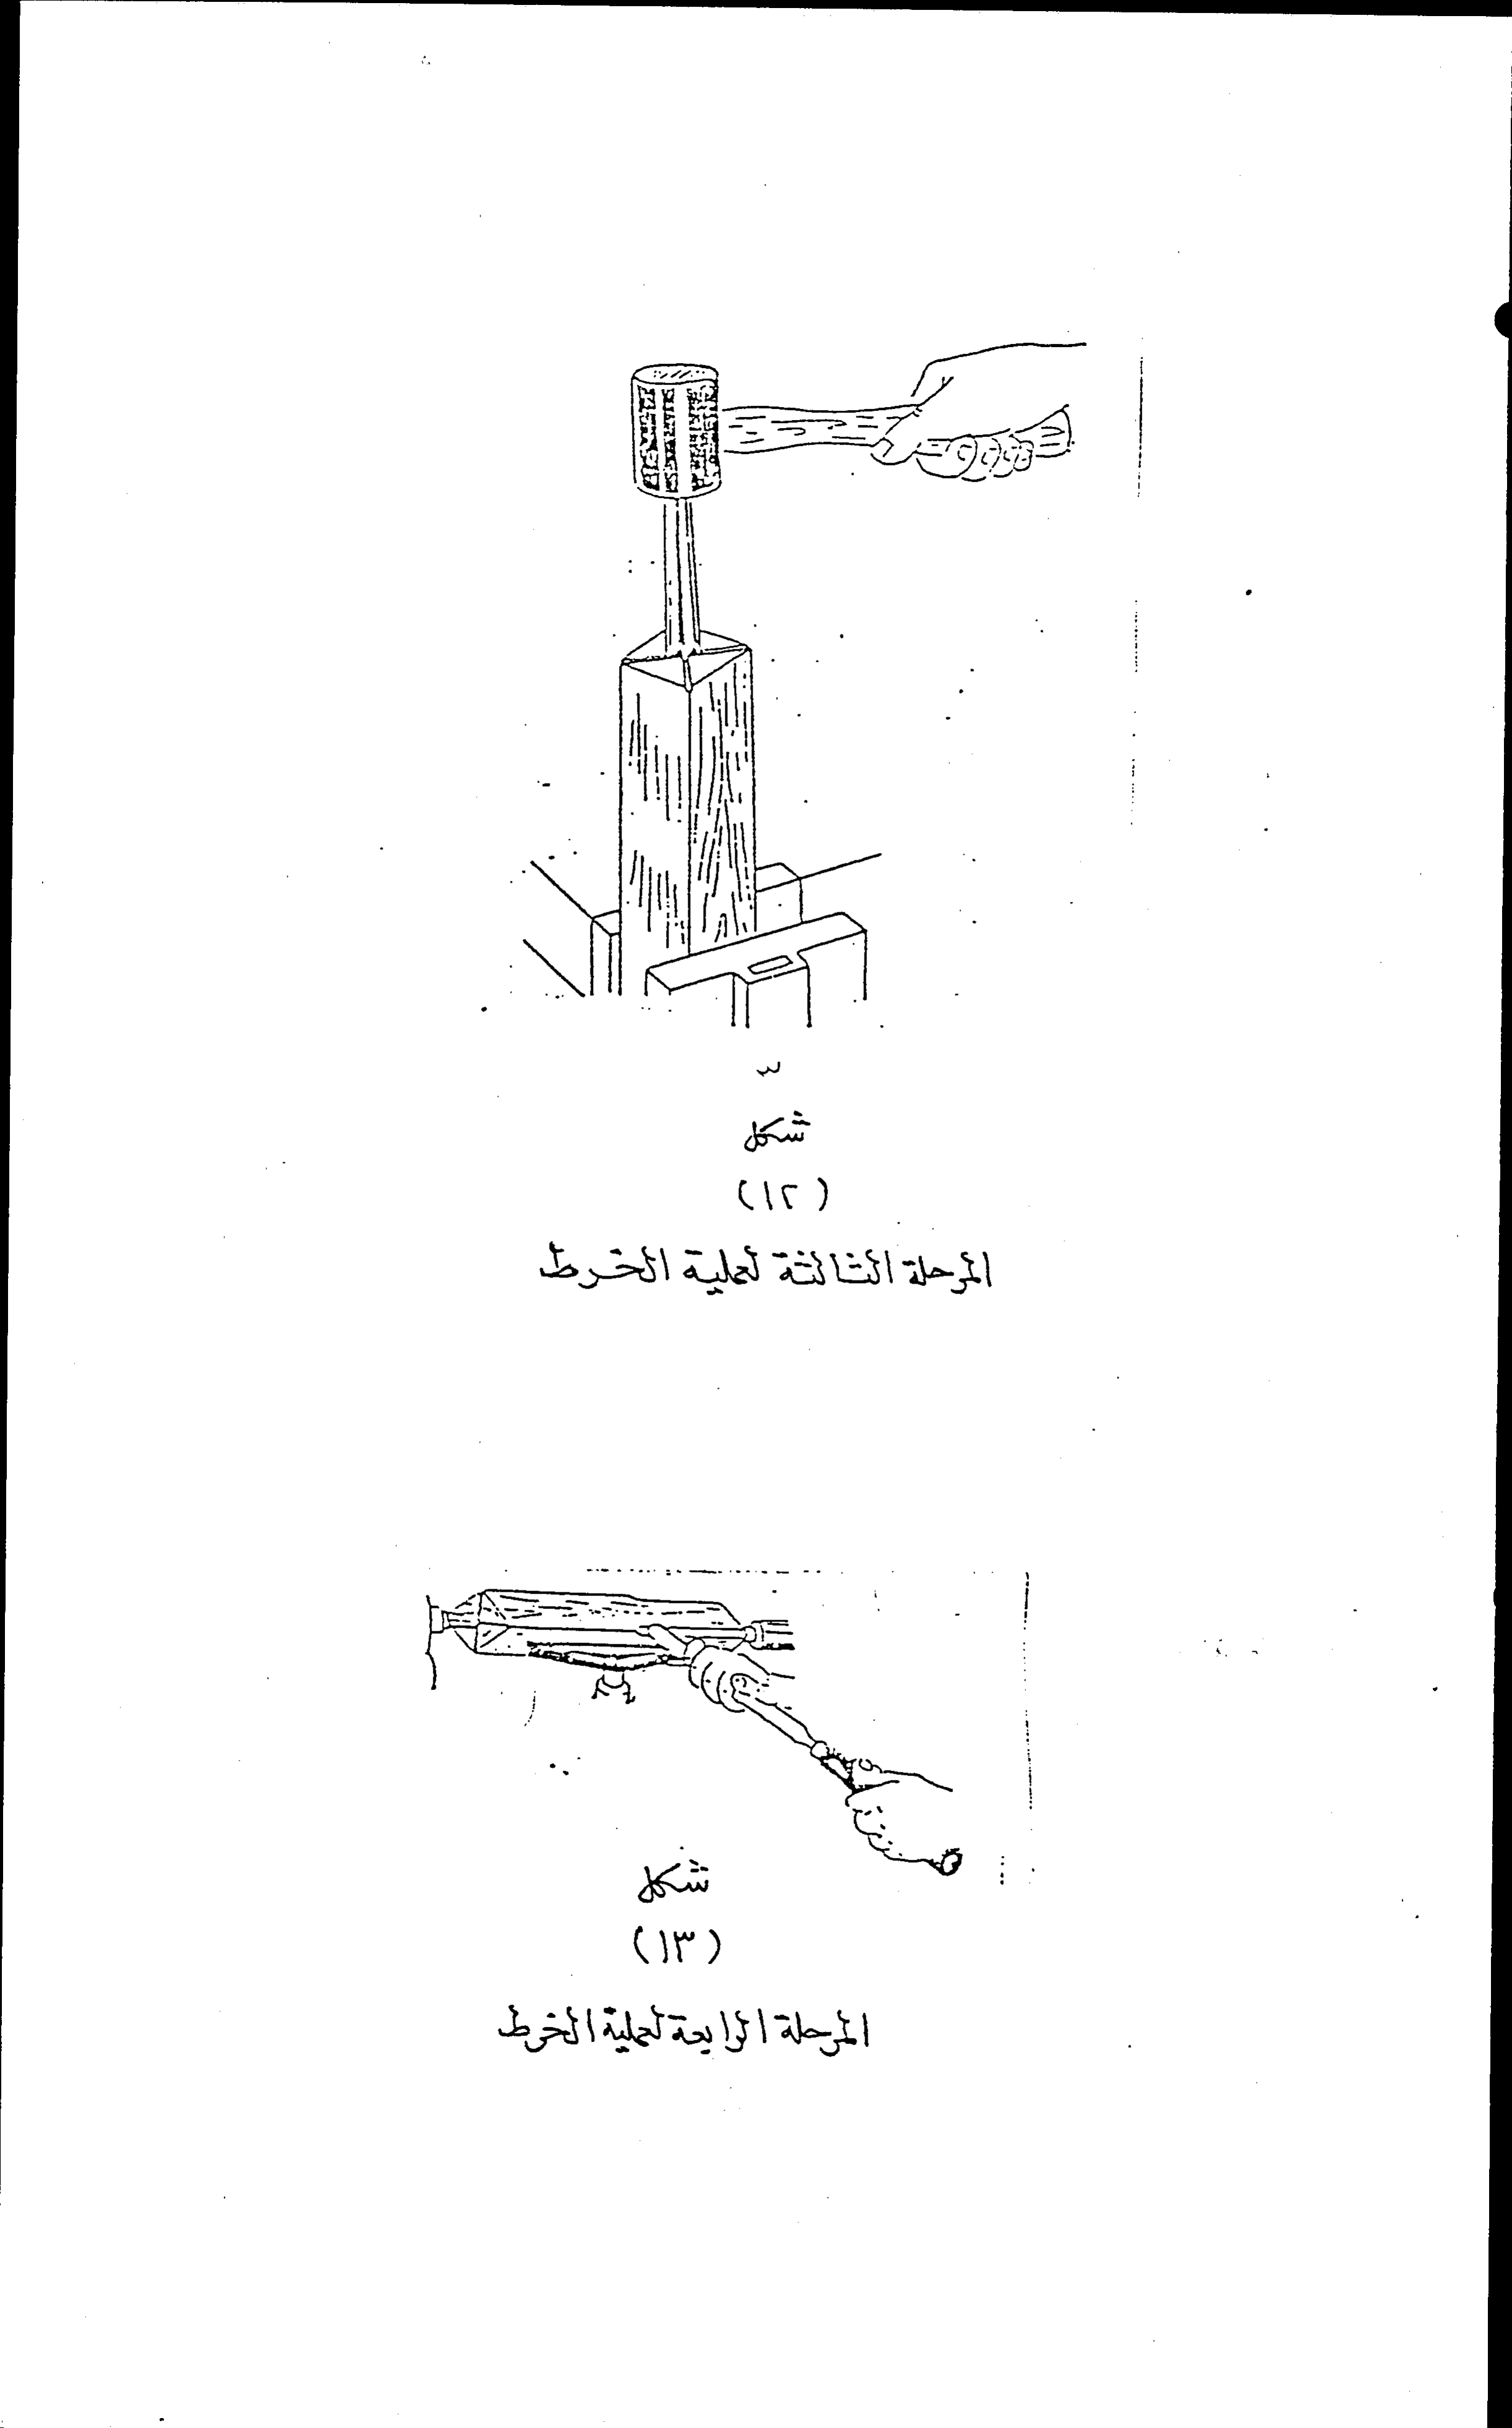 ٣
شكل
(١٢)
المرحلة الثالثة لعملية الخرط
شكل
(١٣)
المرحلة الرابعة لعملية الخرط